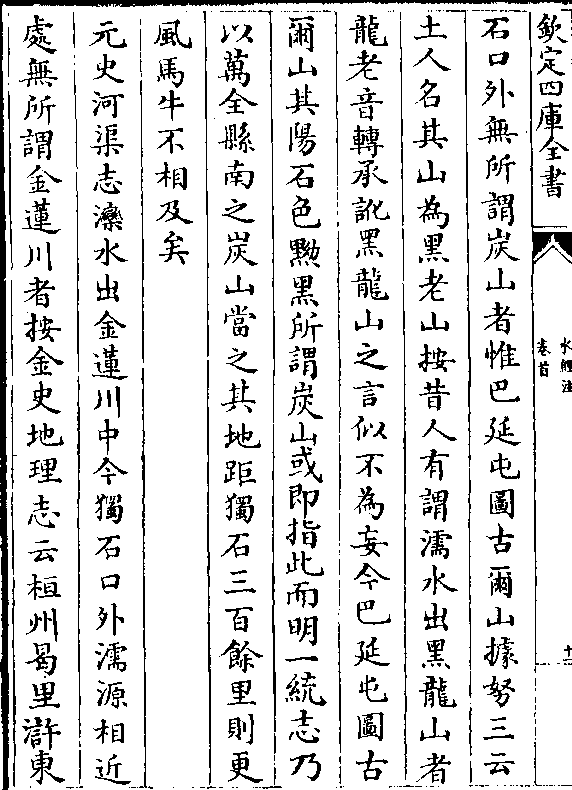 欽定四庫全書
水經注
卷首
十
石口外無所謂炭山者惟巴延屯圖古爾山據努三云
土人名其山為黑老山按昔人有謂濡水出黑龍山者
龍老音轉承訛黑龍山之言似不為妄今巴延屯圖古
爾山其陽石色黝黑所謂炭山或即指此而明一統志乃
以萬全縣南之炭山當之其地距獨石三百餘里則更
風馬牛不相及矣
元史河渠志灤水出金蓮川中今獨石口外濡源相近
處無所謂金蓮川者按金史地理志云桓州曷里滸東